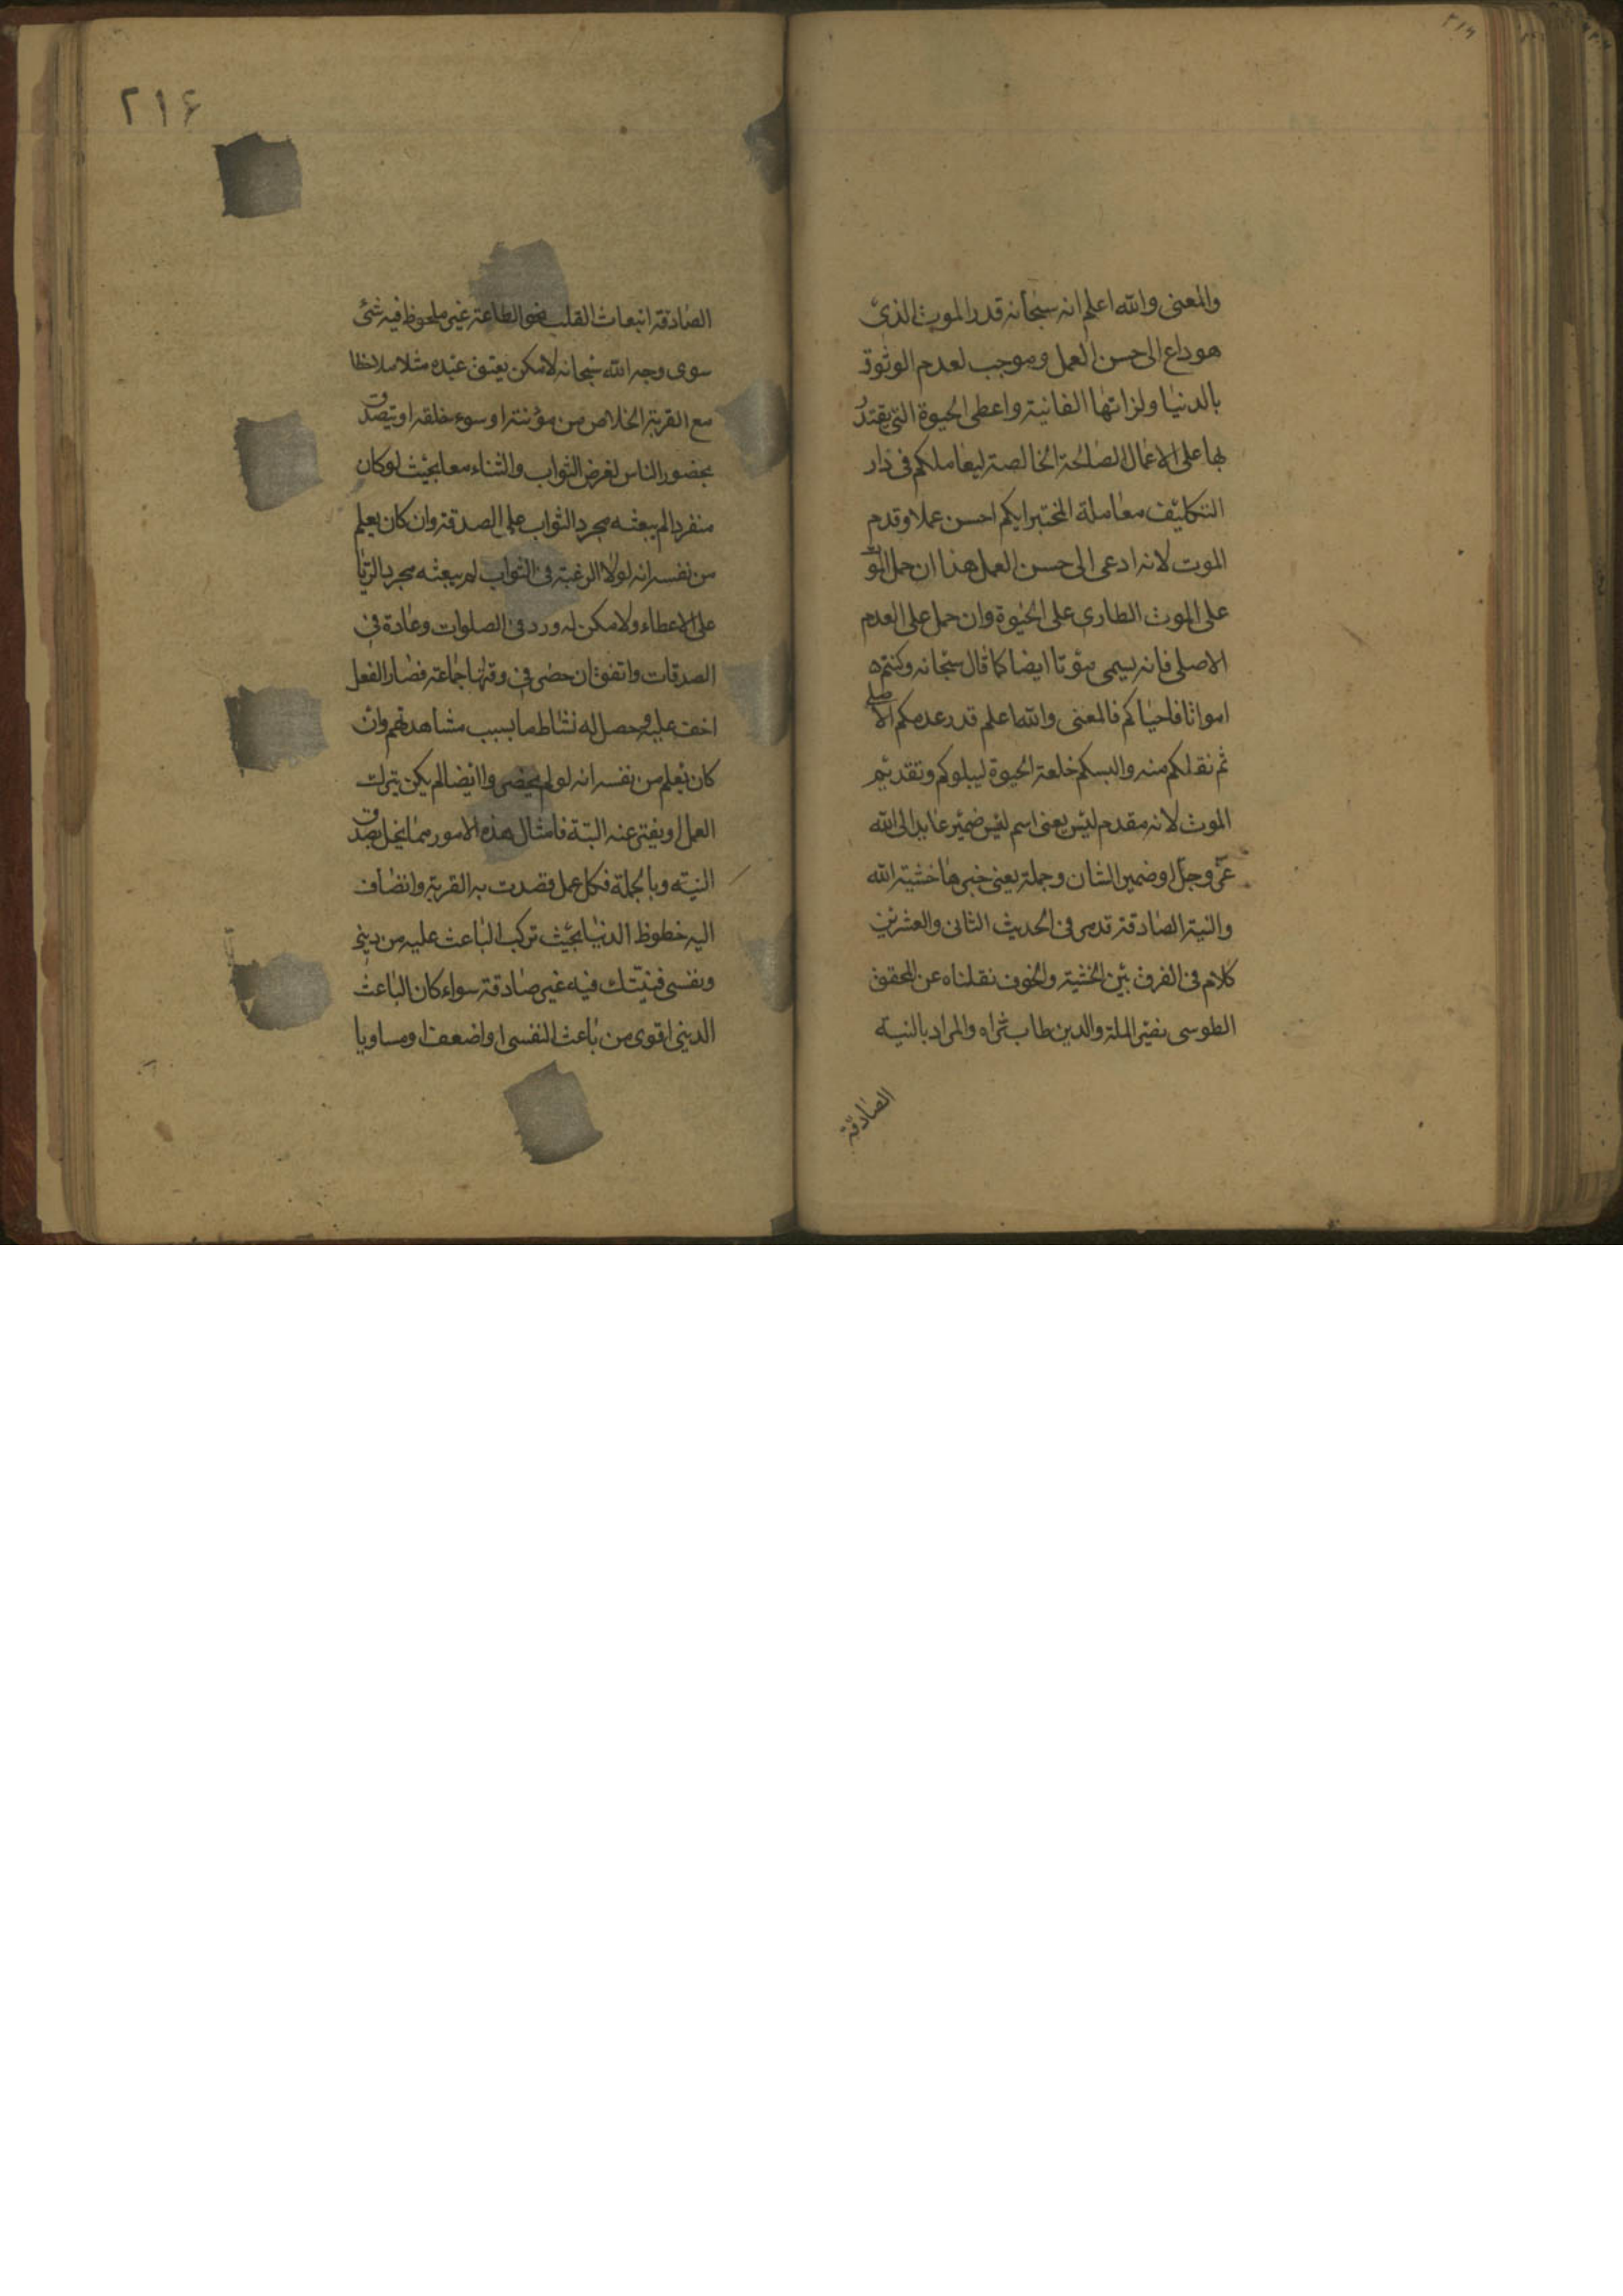 والمعنى والله اعلم انه سبحانه قدر الموت الذى
هو داع الى حسن العمل وموجب لعدم الوثوق
بالدنيا ولزاتها الفانية واعطى الحيوة التى يقتدر
بها على الاعمال الصالحة الخالصة ليعاملكم فى دار
التكليف معاملة المختبر ايكم احسن عملا وقدم
الموت لانه ادعى الى حسن العمل هذا ان حمل الموت
على الموت الطارى على الحيوة وان حمل على العدم
الاصلى فانه يسمى موتا ايضا كما قال سبحانه وكنتم
امواتا فاحياكم فالمعنى والله اعلم قدر عدمكم الاصلى
ثم نقلكم منه والبسكم خلعة الحيوة ليبلوكم وتقديم
الموت لانه مقدم ليس يعنى اسم ليس ضمير عايد الى الله
عز وجل او ضمير الشان وجملة يعنى خبرها خشية الله
والنية الصادقة قد مر فى الحديث الثانى والعشرين
كلام فى الفرق بين الخشية والخوف نقلناه عن المحقق
الطوسى نصير الملة والدين طاب ثراه والمراد بالنية
الصادقة
٢١۶
الصادقة انبعاث القلب نحو الطاعة غير ملحوظ فيه شئ
سوى وجه الله سبحانه لا كمن يعتق عبده مثلا ملاحظا
مع القربة الخلاص من مؤنته او سوء خلقه او يتصدق
بحضور الناس لغرض الثواب والثناء معا بحيث لو كان
منفردا لم يبعثه مجرد الثواب على الصدقة وان كان يعلم
من نفسه انه لولا الرغبة فى الثواب لم يبعثه مجرد الريا
على الاعطاء ولا كمن له ورد فى الصلوات وعادة فى
الصدقات واتفق ان حضر فى وقتها جماعة فصار الفعل
اخف عليه وحصل له نشاط ما بسبب مشاهدتهم وان
كان يعلم من نفسه انه لو لم يحضروا ايضا لم يكن يترك
العمل او يفتر عنه البتة فامثال هذه الامور مما يخل بصدق
النية وبالجملة فكل عمل قصدت به القربة وانضاف
اليه حظوظ الدنيا بحيث تركب الباعث عليه من دينى
ونفسى فنيتك فيه غير صادقة سواء كان الباعث
الدينى اقوى من باعث النفسى او اضعف او مساويا